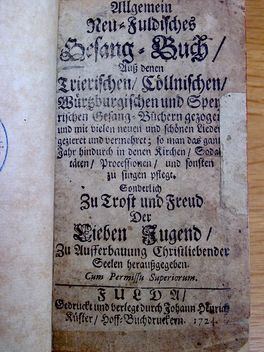 Allgemein
Neu-Fuldisches
Gesang-Buch /
Auß denen
Trierischen / Cöllnischen /
Würtzburgischen und Spey-
rischen Gesang-Büchern gezogen
und mit vielen neuen und schönen Lieder
gezieret und vermehret; so man das gantz
Jahr hindurch in denen Kirchen / Soda-
täten / Processionen / und sonsten
zu singen pflegt.
Sonderlich
Zu Trost und Freud
Der
Lieben Jugend /
Zu Aufferbauung Christliebender
Seelen heraußgegeben.
Cum Permissu Superiorum.
FULDA /
Gedruckt und verlegt durch Johann Henrich
Küster / Hoff-Buchdruckern. 1724